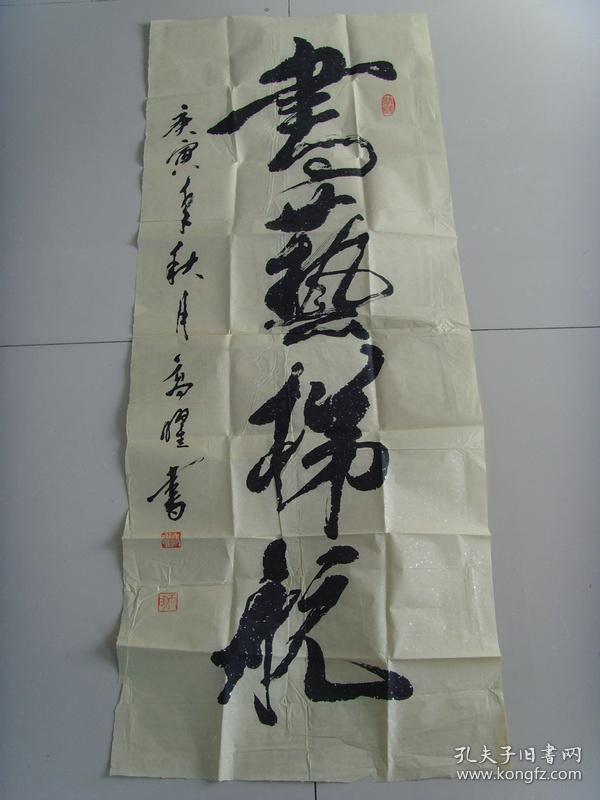 書藝梯航
庚寅年秋月高曜書
孔夫子旧書网
www.kongfz.com